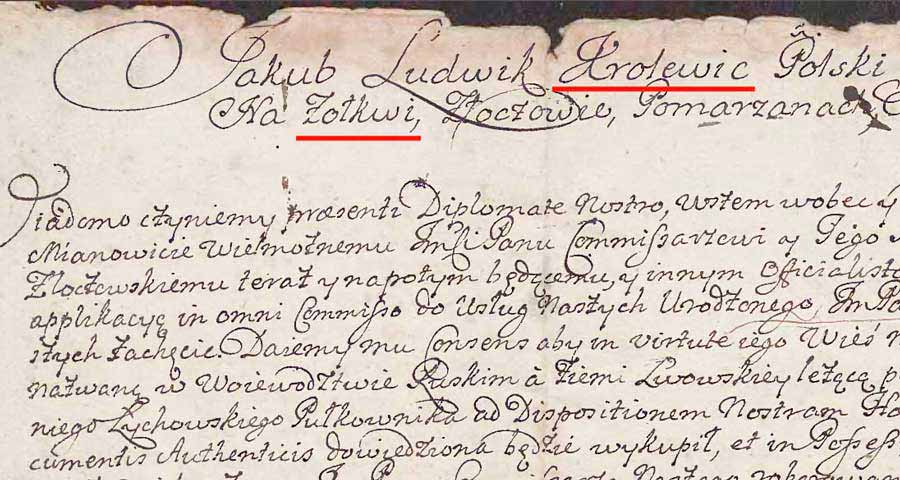 Jakub Ludwik Krolewic Polski
Na Żołkwi, Złoczowie, Pomarzanach,
Wiadomo czyniemy præsenti Diplomate Nostro, wszem wobec y
Mianowicie Wielmożnemu Panu Commissarzewi y Jego
Złoczewskiemu teraz y napotym będącemu, y innym Officialisto
applikacyą in omni Commisso do Usług Naszych Urodzonego,
szłych zachęcic. Daiemy mu Consens aby in virtute iego Wieś
nazwaną w Woiewodztwie Ruskim à Ziemi Lwowskiey leżącą
niego Zychowskiego Pułkownika ad Dispositionem Nostram
cumentis Authenticis dowiedziona będzie wykupił, et in Possess